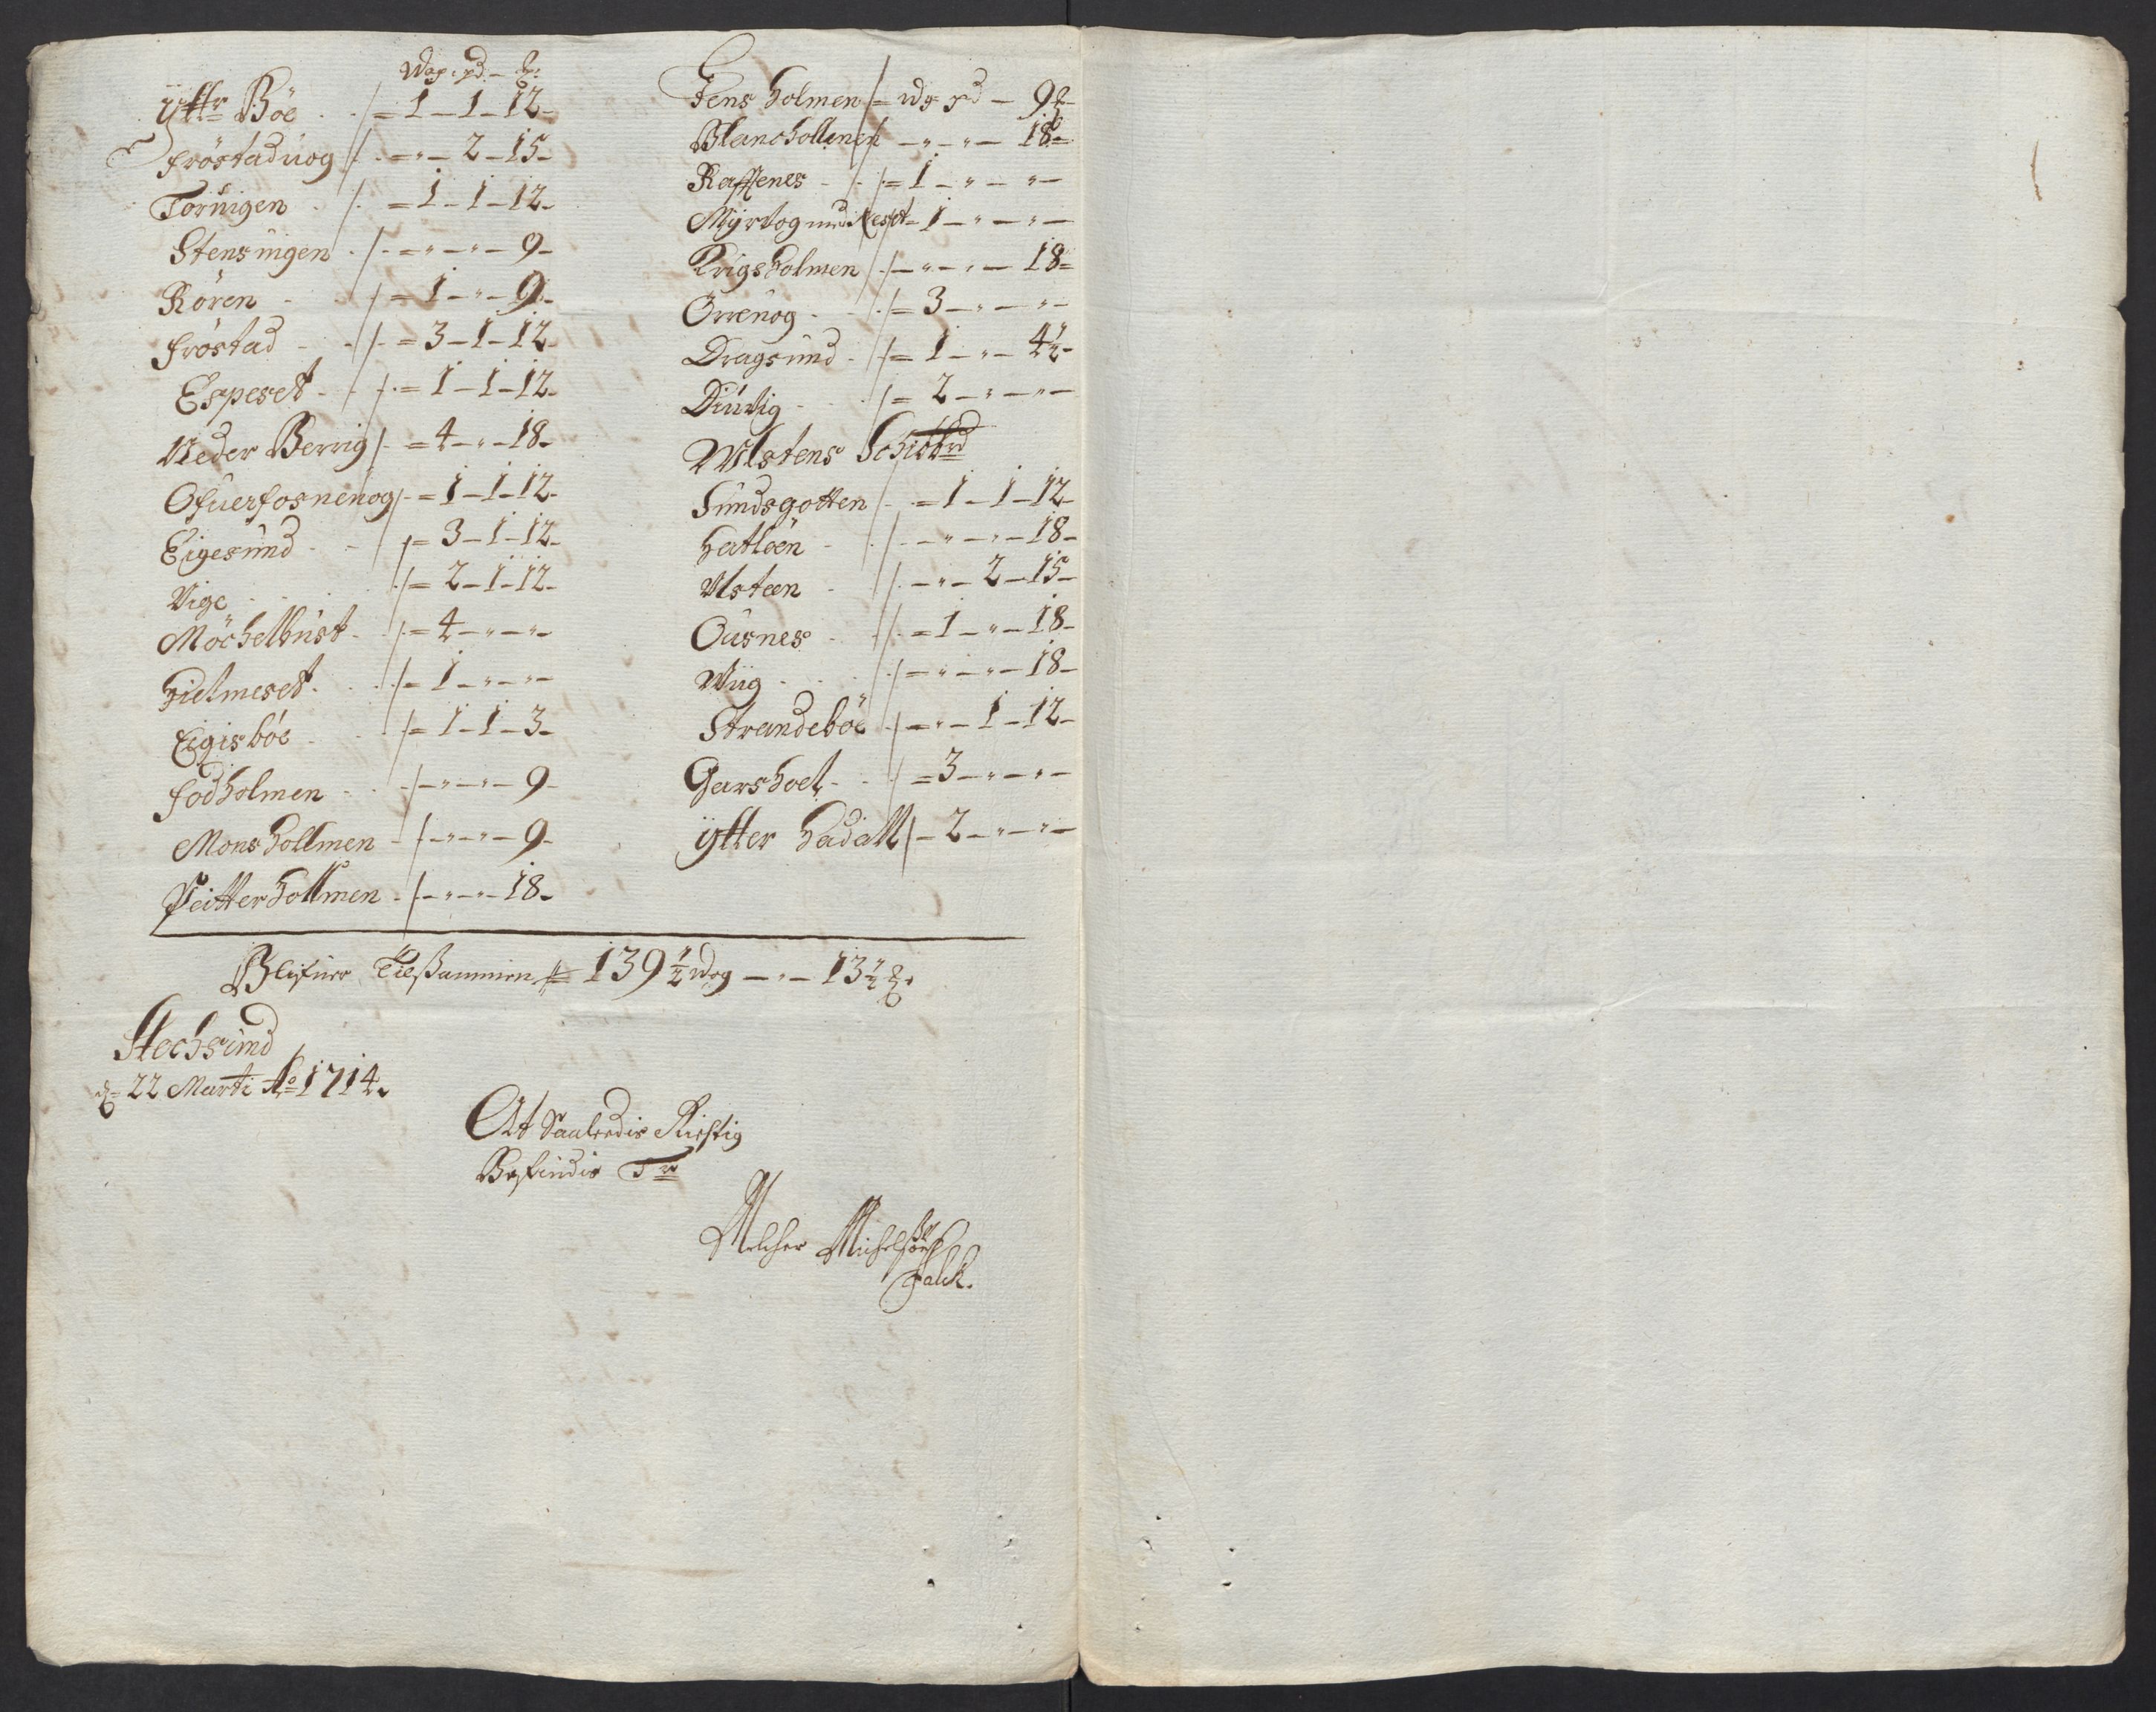 Wog: pd - ℔:
Ytter Böe = 1 - 1 - 12 -
fröstaduog = " - 2 - 15 -
Töruigen = 1 - 1 - 12 -
Stensuigen = " - " - 9 -
Rören = 1 - " - 9 -
fröstad = 3 - 1 - 12
Espeset = 1 - 1 - 12 -
Neder Berrig = 4 - " - 18 -
Ofuerfosnenog = 1 - 1 - 12 -
Eigesund = 3 - 1 - 12 -
Vige = 2 - 1 - 12 -
Möchelbust = 4 - " - " -
Hielmeset = 1 - " - " -
Eigisböe = 1 - 1 - 3 -
fodholmen - " - " - 9 -
Monshollmen - " - " - 9 -
Peitterhollmen - " - " - 18 -
Jens holmen = wog pd - 9 ℔ -
Blanchollmen - " - " - 18 -
Raffenes = 1 - " - " -
Myrvog = 1 - " - " -
Krigsholmen - " - " - 18 =
Örrenog = 3 - " - " -
Dragsund = 1 - " - 4½ -
Diuvig = 2 - " - " -
Ulstens Schibbrd
Sundsgotten = 1 - 1 - 12 -
Hatlöen - " - " - 18 -
Ulsteen - " - 2 - 15 -
Ousnes = 1 - " - 18 -
Wiig = " - " - 18 -
Strandeböe = " - 1 - 12 -
Garshoel = 3 - " - " -
Ytter Hadall - 2 - " - " -
Blifuer Tilsammen = 139½ wog - " - 13½ ℔.
Stochsund
d = 22 Marti Ao 1714.
At Saaledis Rigtig
Befindis
Melcher Michelsøn
Falck.